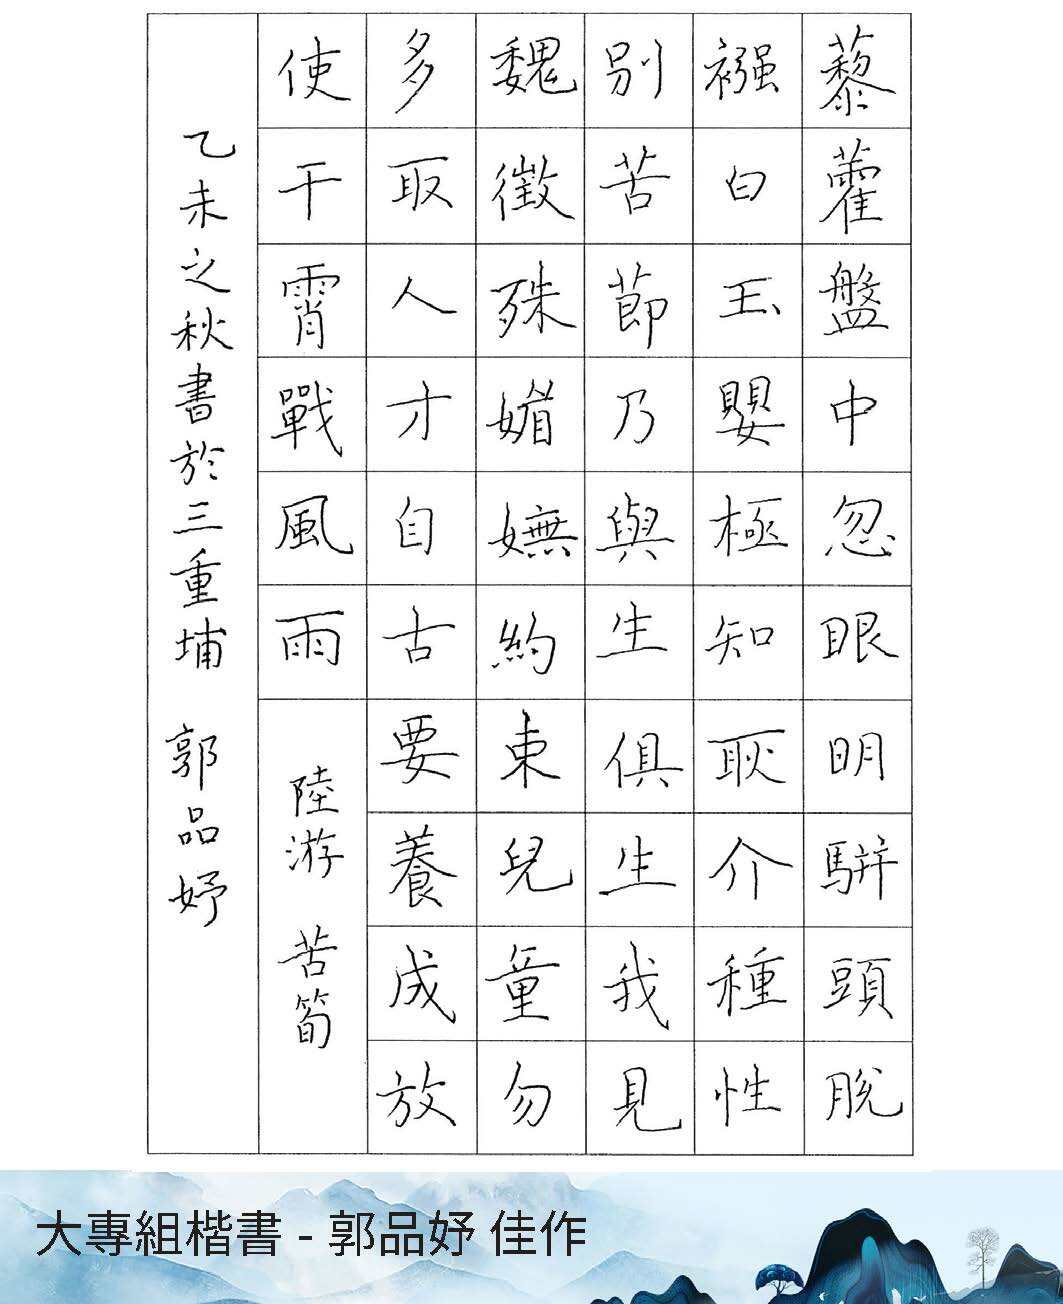 藜藿盤中忽眼明駢頭脫
襁白玉嬰極知耿介種性
別苦節乃與生俱生我見
魏徵殊媚嫵約束兒童勿
多取人才自古要養成放
使干霄戰風雨
陸游 苦筍
乙未之秋書於三重埔 郭品妤
大專組楷書 - 郭品妤 佳作